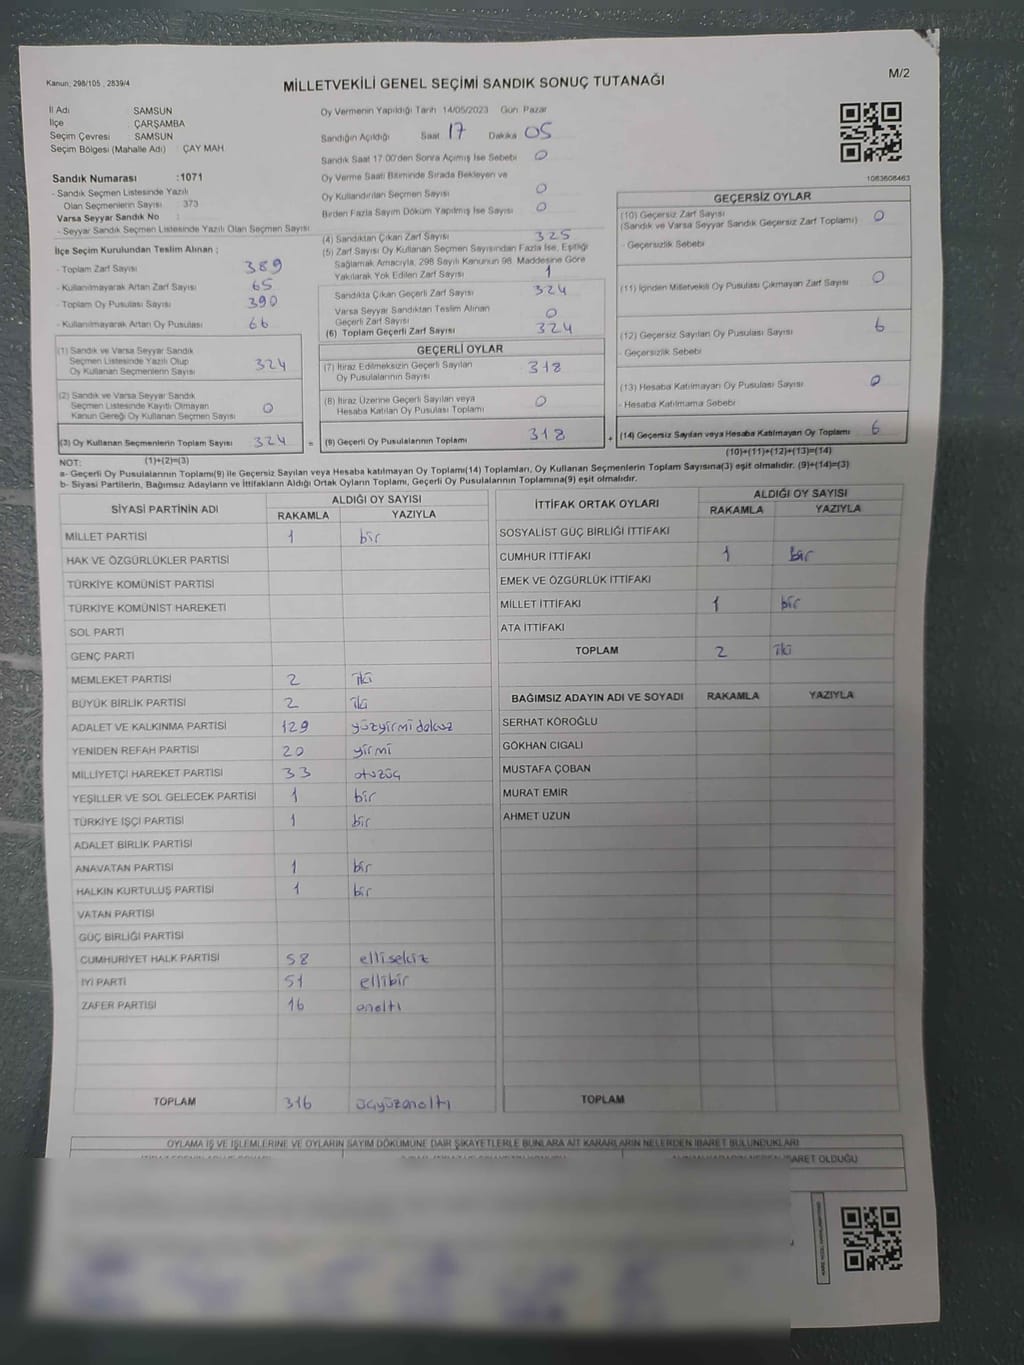 Kanun; 298/105 , 2839/4
MİLLETVEKİLİ GENEL SEÇİMİ SANDIK SONUÇ TUTANAĞI
M/2
İl Adı SAMSUN
İlçe ÇARŞAMBA
Seçim Çevresi : SAMSUN
Seçim Bölgesi (Mahalle Adı) : ÇAY MAH
Sandık Numarası :1071
- Sandık Seçmen Listesinde Yazılı
Olan Seçmenlerin Sayısı : 373
Varsa Seyyar Sandık No :
- Seyyar Sandık Seçmen Listesinde Yazılı Olan Seçmen Sayısı
İlçe Seçim Kurulundan Teslim Alınan ;
- Toplam Zarf Sayısı 389
- Kullanılmayarak Artan Zarf Sayısı 65
- Toplam Oy Pusulası Sayısı 390
- Kullanılmayarak Artan Oy Pusulası 66
(1) Sandık ve Varsa Seyyar Sandık
Seçmen Listesinde Yazılı Olup
Oy Kullanan Seçmenlerin Sayısı 324
(2) Sandık ve Varsa Seyyar Sandık
Seçmen Listesinde Kayıtlı Olmayan
Kanun Gereği Oy Kullanan Seçmen Sayısı 0
(3) Oy Kullanan Seçmenlerin Toplam Sayısı 324 =
Oy Vermenin Yapıldığı Tarih 14/05/2023 Gün Pazar
Sandığın Açıldığı Saat 17 Dakika 05
Sandık Saat 17 00'den Sonra Açılmış İse Sebebi 0
Oy Verme Saati Bitiminde Sırada Bekleyen ve
Oy Kullandırılan Seçmen Sayısı 0
Birden Fazla Sayım Döküm Yapılmış İse Sayısı 0
(4) Sandıktan Çıkan Zarf Sayısı 325
(5) Zarf Sayısı Oy Kullanan Seçmen Sayısından Fazla İse, Eşitliği
Sağlamak Amacıyla, 298 Sayılı Kanunun 98. Maddesine Göre
Yakılarak Yok Edilen Zarf Sayısı 1
Sandıkta Çıkan Geçerli Zarf Sayısı 324
Varsa Seyyar Sandıktan Teslim Alınan
Geçerli Zarf Sayısı 0
(6) Toplam Geçerli Zarf Sayısı 324
GEÇERLİ OYLAR
(7) İtiraz Edilmeksizin Geçerli Sayılan
Oy Pusulalarının Sayısı 318
(8) İtiraz Üzerine Geçerli Sayılan veya
Hesaba Katılan Oy Pusulası Toplamı 0
(9) Geçerli Oy Pusulalarının Toplamı 318 +
1083608463
GEÇERSİZ OYLAR
(10) Geçersiz Zarf Sayısı 0
(Sandık ve Varsa Seyyar Sandık Geçersiz Zarf Toplamı)
- Geçersizlik Sebebi
(11) İçinden Milletvekili Oy Pusulası Çıkmayan Zarf Sayısı 0
(12) Geçersiz Sayılan Oy Pusulası Sayısı 6
- Geçersizlik Sebebi
(13) Hesaba Katılmayan Oy Pusulası Sayısı 0
- Hesaba Katılmama Sebebi
(14) Geçersiz Sayılan veya Hesaba Katılmayan Oy Toplamı 6
NOT: (1)+(2)=(3)
(10)+(11)+(12)+(13)=(14)
a- Geçerli Oy Pusulalarının Toplamı(9) ile Geçersiz Sayılan veya Hesaba katılmayan Oy Toplamı(14) Toplamları, Oy Kullanan Seçmenlerin Toplam Sayısına(3) eşit olmalıdır. (9)+(14)=(3)
b- Siyasi Partilerin, Bağımsız Adayların ve İttifakların Aldığı Ortak Oyların Toplamı, Geçerli Oy Pusulalarının Toplamına(9) eşit olmalıdır.
SİYASİ PARTİNİN ADI ALDIĞI OY SAYISI
RAKAMLA YAZIYLA
MİLLET PARTİSİ 1 bir
HAK VE ÖZGÜRLÜKLER PARTİSİ
TÜRKİYE KOMÜNİST PARTİSİ
TÜRKİYE KOMÜNİST HAREKETİ
SOL PARTİ
GENÇ PARTİ
MEMLEKET PARTİSİ 2 iki
BÜYÜK BİRLİK PARTİSİ 2 iki
ADALET VE KALKINMA PARTİSİ 129 yüzyirmidokuz
YENİDEN REFAH PARTİSİ 20 yirmi
MİLLİYETÇİ HAREKET PARTİSİ 33 otuzüç
YEŞİLLER VE SOL GELECEK PARTİSİ 1 bir
TÜRKİYE İŞÇİ PARTİSİ 1 bir
ADALET BİRLİK PARTİSİ
ANAVATAN PARTİSİ 1 bir
HALKIN KURTULUŞ PARTİSİ 1 bir
VATAN PARTİSİ
GÜÇ BİRLİĞİ PARTİSİ
CUMHURİYET HALK PARTİSİ 58 ellisekiz
İYİ PARTİ 51 ellibir
ZAFER PARTİSİ 16 onaltı
TOPLAM 316 üçyüzonaltı
İTTİFAK ORTAK OYLARI ALDIĞI OY SAYISI
RAKAMLA YAZIYLA
SOSYALİST GÜÇ BİRLİĞİ İTTİFAKI
CUMHUR İTTİFAKI 1 bir
EMEK VE ÖZGÜRLÜK İTTİFAKI
MİLLET İTTİFAKI 1 bir
ATA İTTİFAKI
TOPLAM 2 iki
BAĞIMSIZ ADAYIN ADI VE SOYADI RAKAMLA YAZIYLA
SERHAT KÖROĞLU
GÖKHAN CIGALI
MUSTAFA ÇOBAN
MURAT EMİR
AHMET UZUN
TOPLAM
OYLAMA İŞ VE İŞLEMLERİNE VE OYLARIN SAYIM DÖKÜMÜNE DAİR ŞİKAYETLERLE BUNLARA AİT KARARLARIN NELERDEN İBARET BULUNDUKLARI
İBARET OLDUĞU